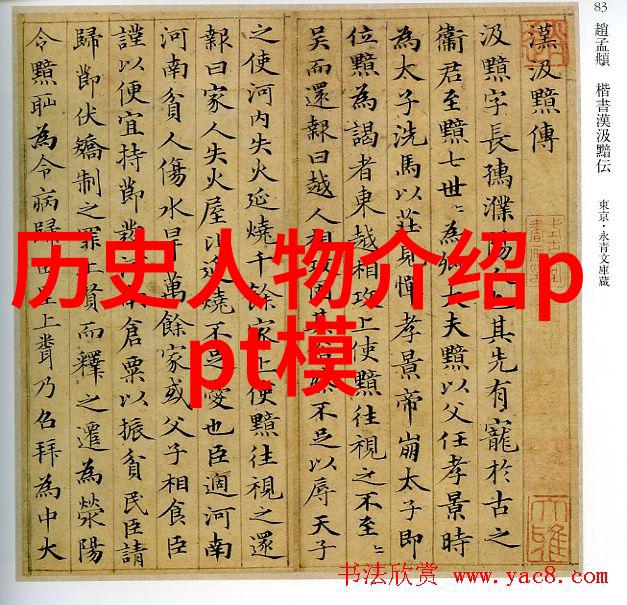 83 趙孟頫 楷書漢汲黯伝 東京・永青文庫蔵
漢汲黯傳
汲黯字長孺濮陽人也其先有寵於古之
衞君至黯七世〻為卿大夫黯以父任孝景時
為太子洗馬以莊見憚孝景帝崩太子即
位黯為謁者東越相攻上使黯往視之不至〻
吳而還報曰越人相攻固其俗然不足以辱天子
之使河内失火延燒千餘家上使黯往視之還
報曰家人失火屋比延燒不足憂也臣過河南
河南貧人傷水旱萬餘家或父子相食臣
謹以便宜持節發河南倉粟以振貧民臣請
歸節伏矯制之罪上賢而釋之遷為滎陽
令黯恥為令病歸田里上聞乃召拜為中大
历史人物介绍p
pt模
书法欣赏 www.yac8.com